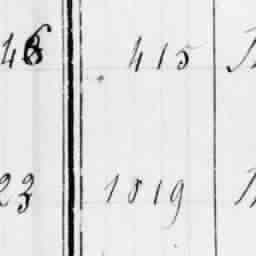 46 415
23 1819